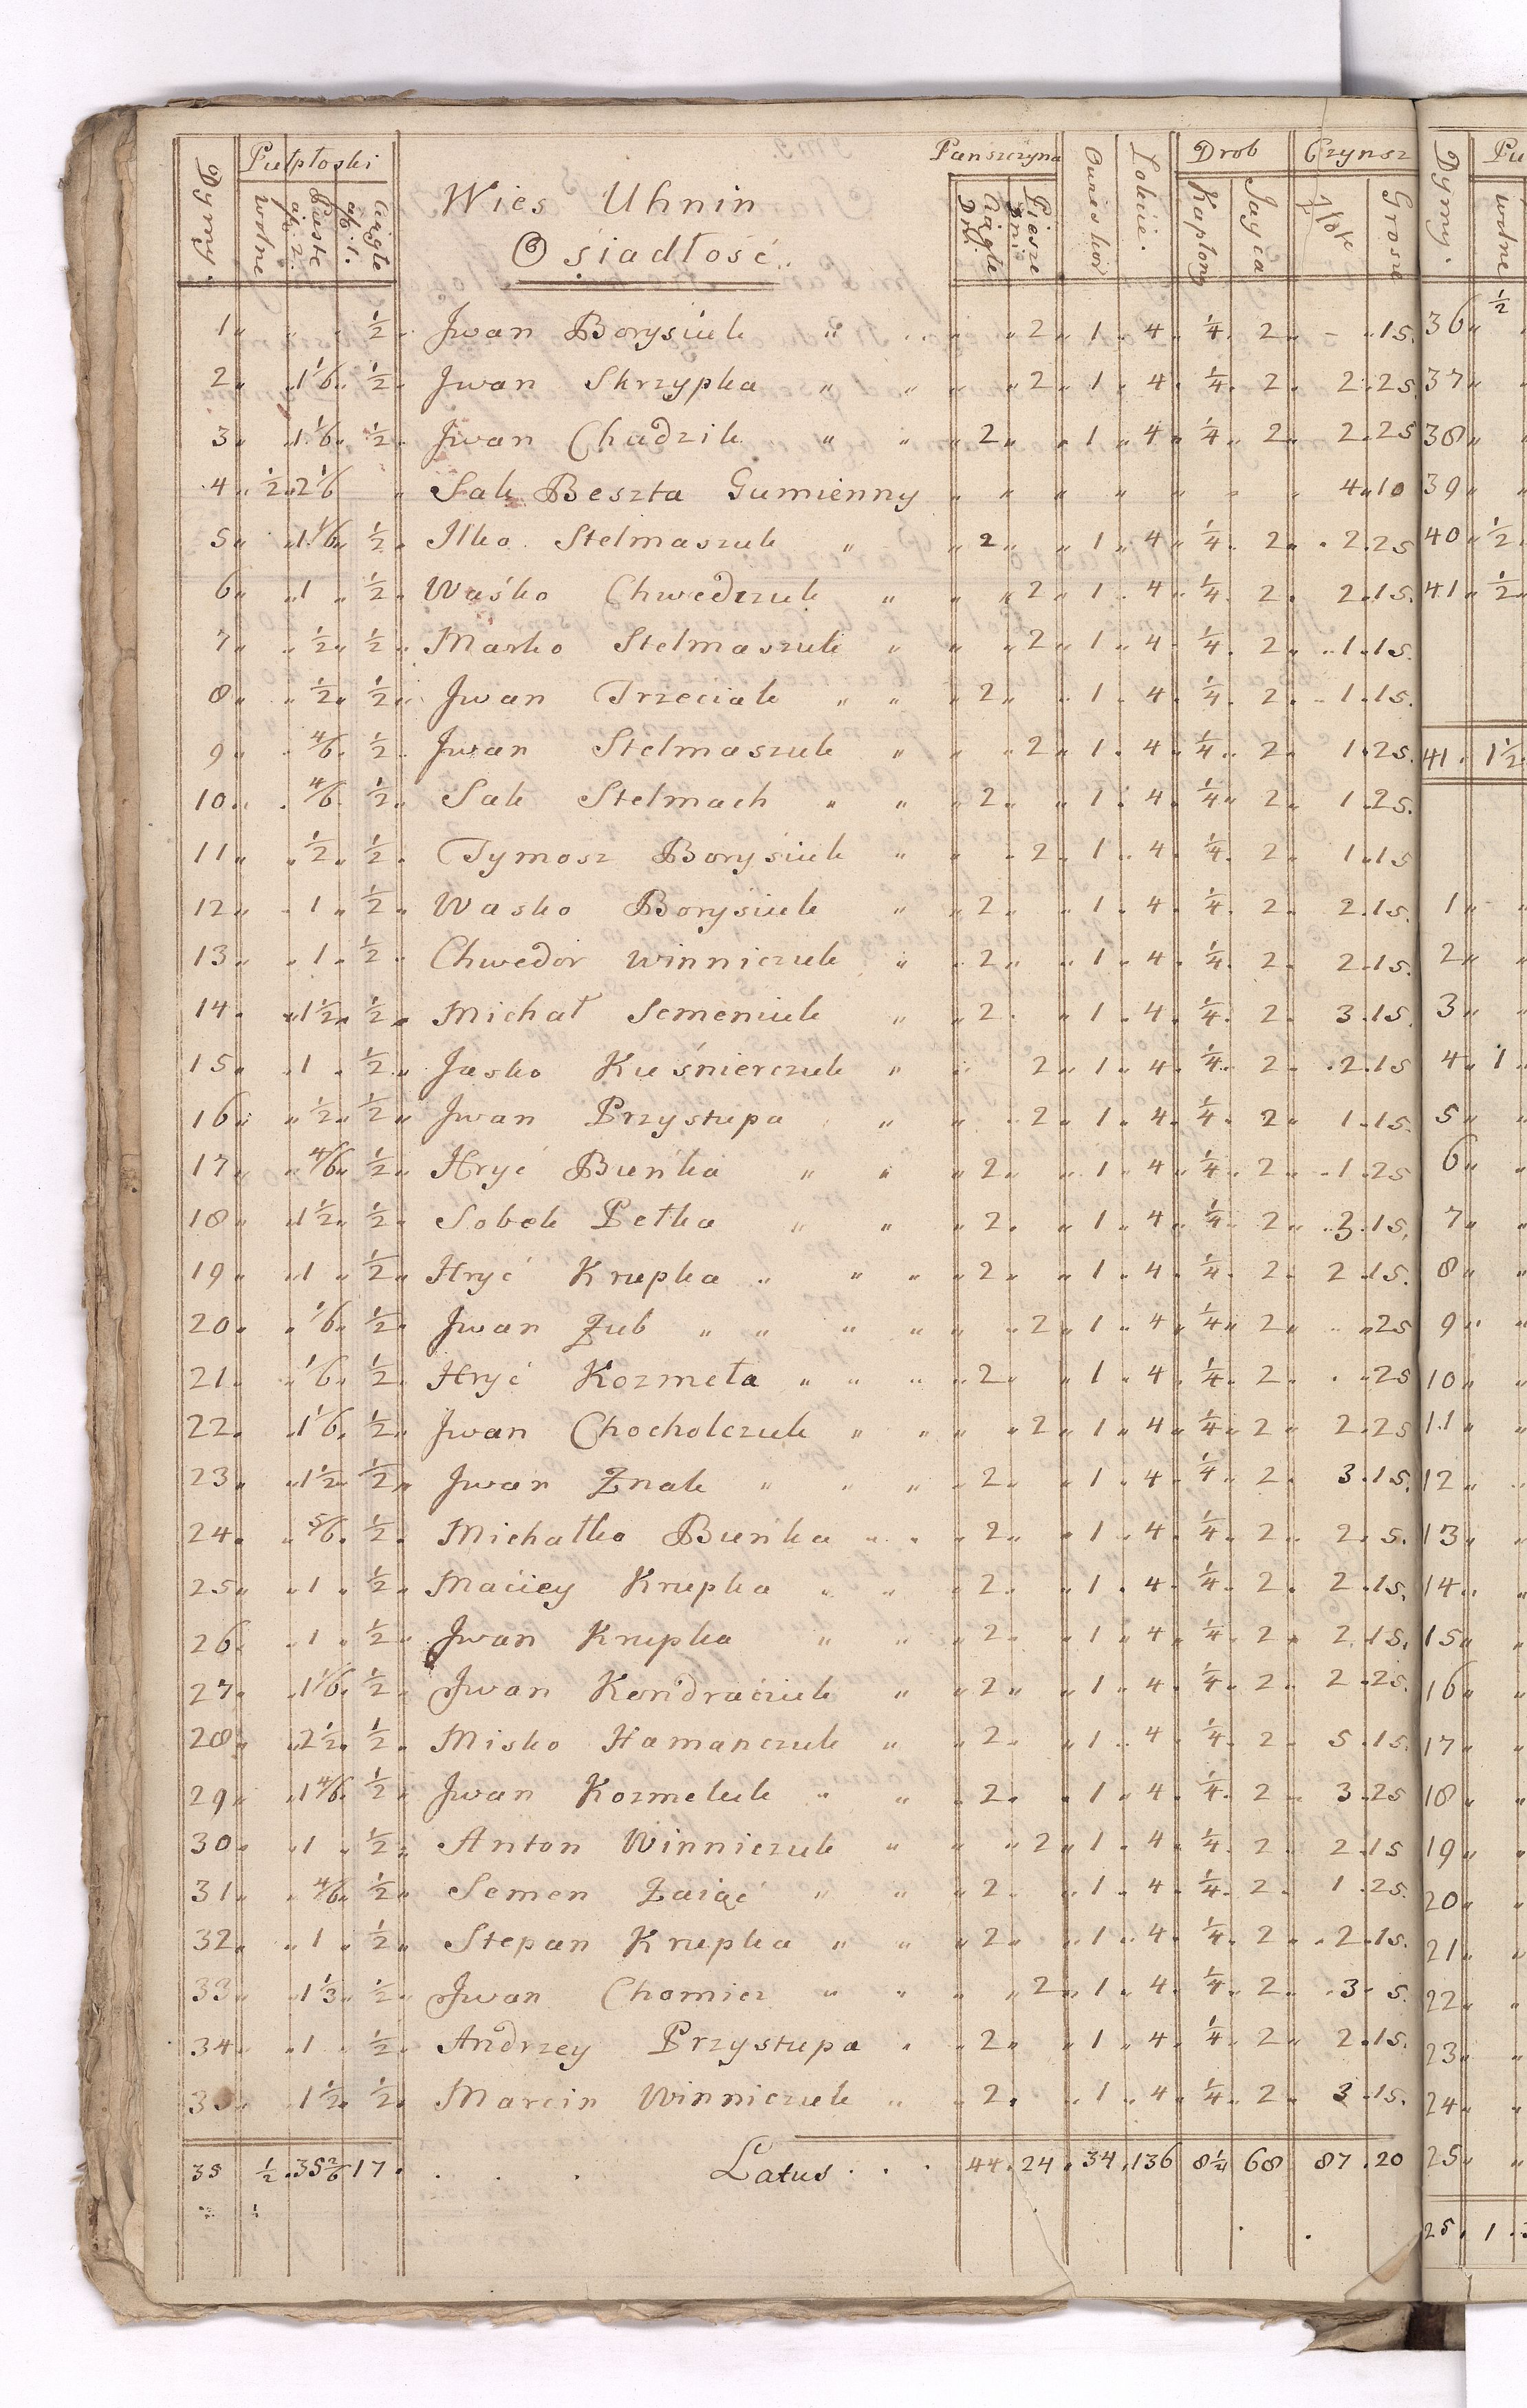 Dymy. Pułpłoski Panszczyna Owies kor Łokcie. Drob Czynsz Dymy. Pu
wolne Puste a fl: 2. ciągłe a fl: 1. Wies Uhnin Ciągłe Dni. Piesze Dni Kapłony Jayca Złote Grosze wolne
Osiadłość.
1 „ „ „ ½ Jwan Borysiuk „ „ 2 1 4 ¼ 2 – 15. 36 ½
2 „ 1 1/6 ½ Jwan Skrzypka „ „ „ 2 1 4 ¼ 2 2 25 37 „
3 „ 1 1/6 ½ Jwan Chudzik „ „ 2 „ 1 4 ¼ 2 2 25 38 „
4 ½ 2 1/6 „ Sak Beszta Gumienny „ „ „ „ „ „ 4 10 39 „
5 „ 1 1/6 ½ Ilko Stelmaszuk „ 2 „ 1 4 ¼ 2 2 25 40 ½
6 „ 1 ½ Waśko Chwedczuk „ „ 2 1 4 ¼ 2 2 15. 41 ½
7 „ ½ ½ Marko Stelmaszuk „ „ 2 1 4 ¼ 2 1 15.
8 „ ½ ½ Jwan Trzeciak „ „ 2 „ 1 4 ¼ 2 1 15.
9 „ 4/6 ½ Jwan Stelmaszuk „ „ 2 1 4 ¼ 2 1 25. 41 1½
10 „ 4/6 ½ Sak Stelmach „ „ 2 „ 1 4 ¼ 2 1 25.
11 „ ½ ½ Tymosz Borysiuk „ „ 2 1 4 ¼ 2 1 15
12 „ 1 ½ Wasko Borysiuk „ 2 „ 1 4 ¼ 2 2 15. 1 „
13 „ 1 ½ Chwedor Winniczuk „ 2 „ 1 4 ¼ 2 2 15. 2 „
14 „ 1½ ½ Michał Semeniuk „ 2 „ 1 4 ¼ 2 3 15. 3 „
15 „ 1 ½ Jasko Kuśnierczuk „ „ 2 1 4 ¼ 2 2 15 4 1
16 „ ½ ½ Jwan Przystupa „ „ 2 1 4 ¼ 2 1 15. 5 „
17 „ 4/6 ½ Hryć Buńka „ „ 2 „ 1 4 ¼ 2 1 25 6 „
18 „ 1½ ½ Sobek Petka „ „ 2 „ 1 4 ¼ 2 3 15. 7 „
19 „ 1 ½ Hryć Krupka „ „ „ 2 „ 1 4 ¼ 2 2 15. 8 „
20 „ 1/6 ½ Jwan Zub „ „ „ „ „ 2 1 4 ¼ 2 „ 25 9 „
21 „ 1/6 ½ Hryć Kozmeta „ „ „ 2 „ 1 4 ¼ 2 „ 25 10 „
22 „ 1 1/6 ½ Jwan Chocholczuk „ „ „ 2 1 4 ¼ 2 2 25 11 „
23 „ 1½ ½ Jwan Znak „ „ „ 2 „ 1 4 ¼ 2 3 15. 12 „
24 „ 5/6 ½ Michałko Buńka „ „ 2 „ 1 4 ¼ 2 2 5. 13 „
25 „ 1 ½ Maciey Krupka „ „ 2 „ 1 4 ¼ 2 2 15. 14 „
26 „ 1 ½ Jwan Krupka „ „ 2 „ 1 4 ¼ 2 2 15. 15 „
27 „ 1 1/6 ½ Jwan Kondraciuk „ 2 „ 1 4 ¼ 2 2 25. 16 „
28 „ 2½ ½ Misko Hamanczuk „ 2 „ 1 4 ¼ 2 5 15. 17 „
29 „ 1 4/6 ½ Jwan Kozmeluk „ „ 2 „ 1 4 ¼ 2 3 25 18 „
30 „ 1 ½ Anton Winniczuk „ „ 2 1 4 ¼ 2 2 15 19 „
31 „ 4/6 ½ Semen Zaiąć „ „ 2 „ 1 4 ¼ 2 1 25. 20 „
32 „ 1 ½ Stepan Krupka „ „ 2 „ 1 4 ¼ 2 2 15. 21 „
33 „ 1⅓ ½ Jwan Chomicz „ „ „ 2 1 4 ¼ 2 3 5. 22 „
34 „ 1 ½ Andrzey Przystupa „ 2 „ 1 4 ¼ 2 2 15. 23 „
35 „ 1½ ½ Marcin Winniczuk „ 2 „ 1 4 ¼ 2 3 15. 24 „
35 ½ 35 2/6 17 . . . Latus . . . 44 24 34 136 8½ 68 87 20 25 „
25 1